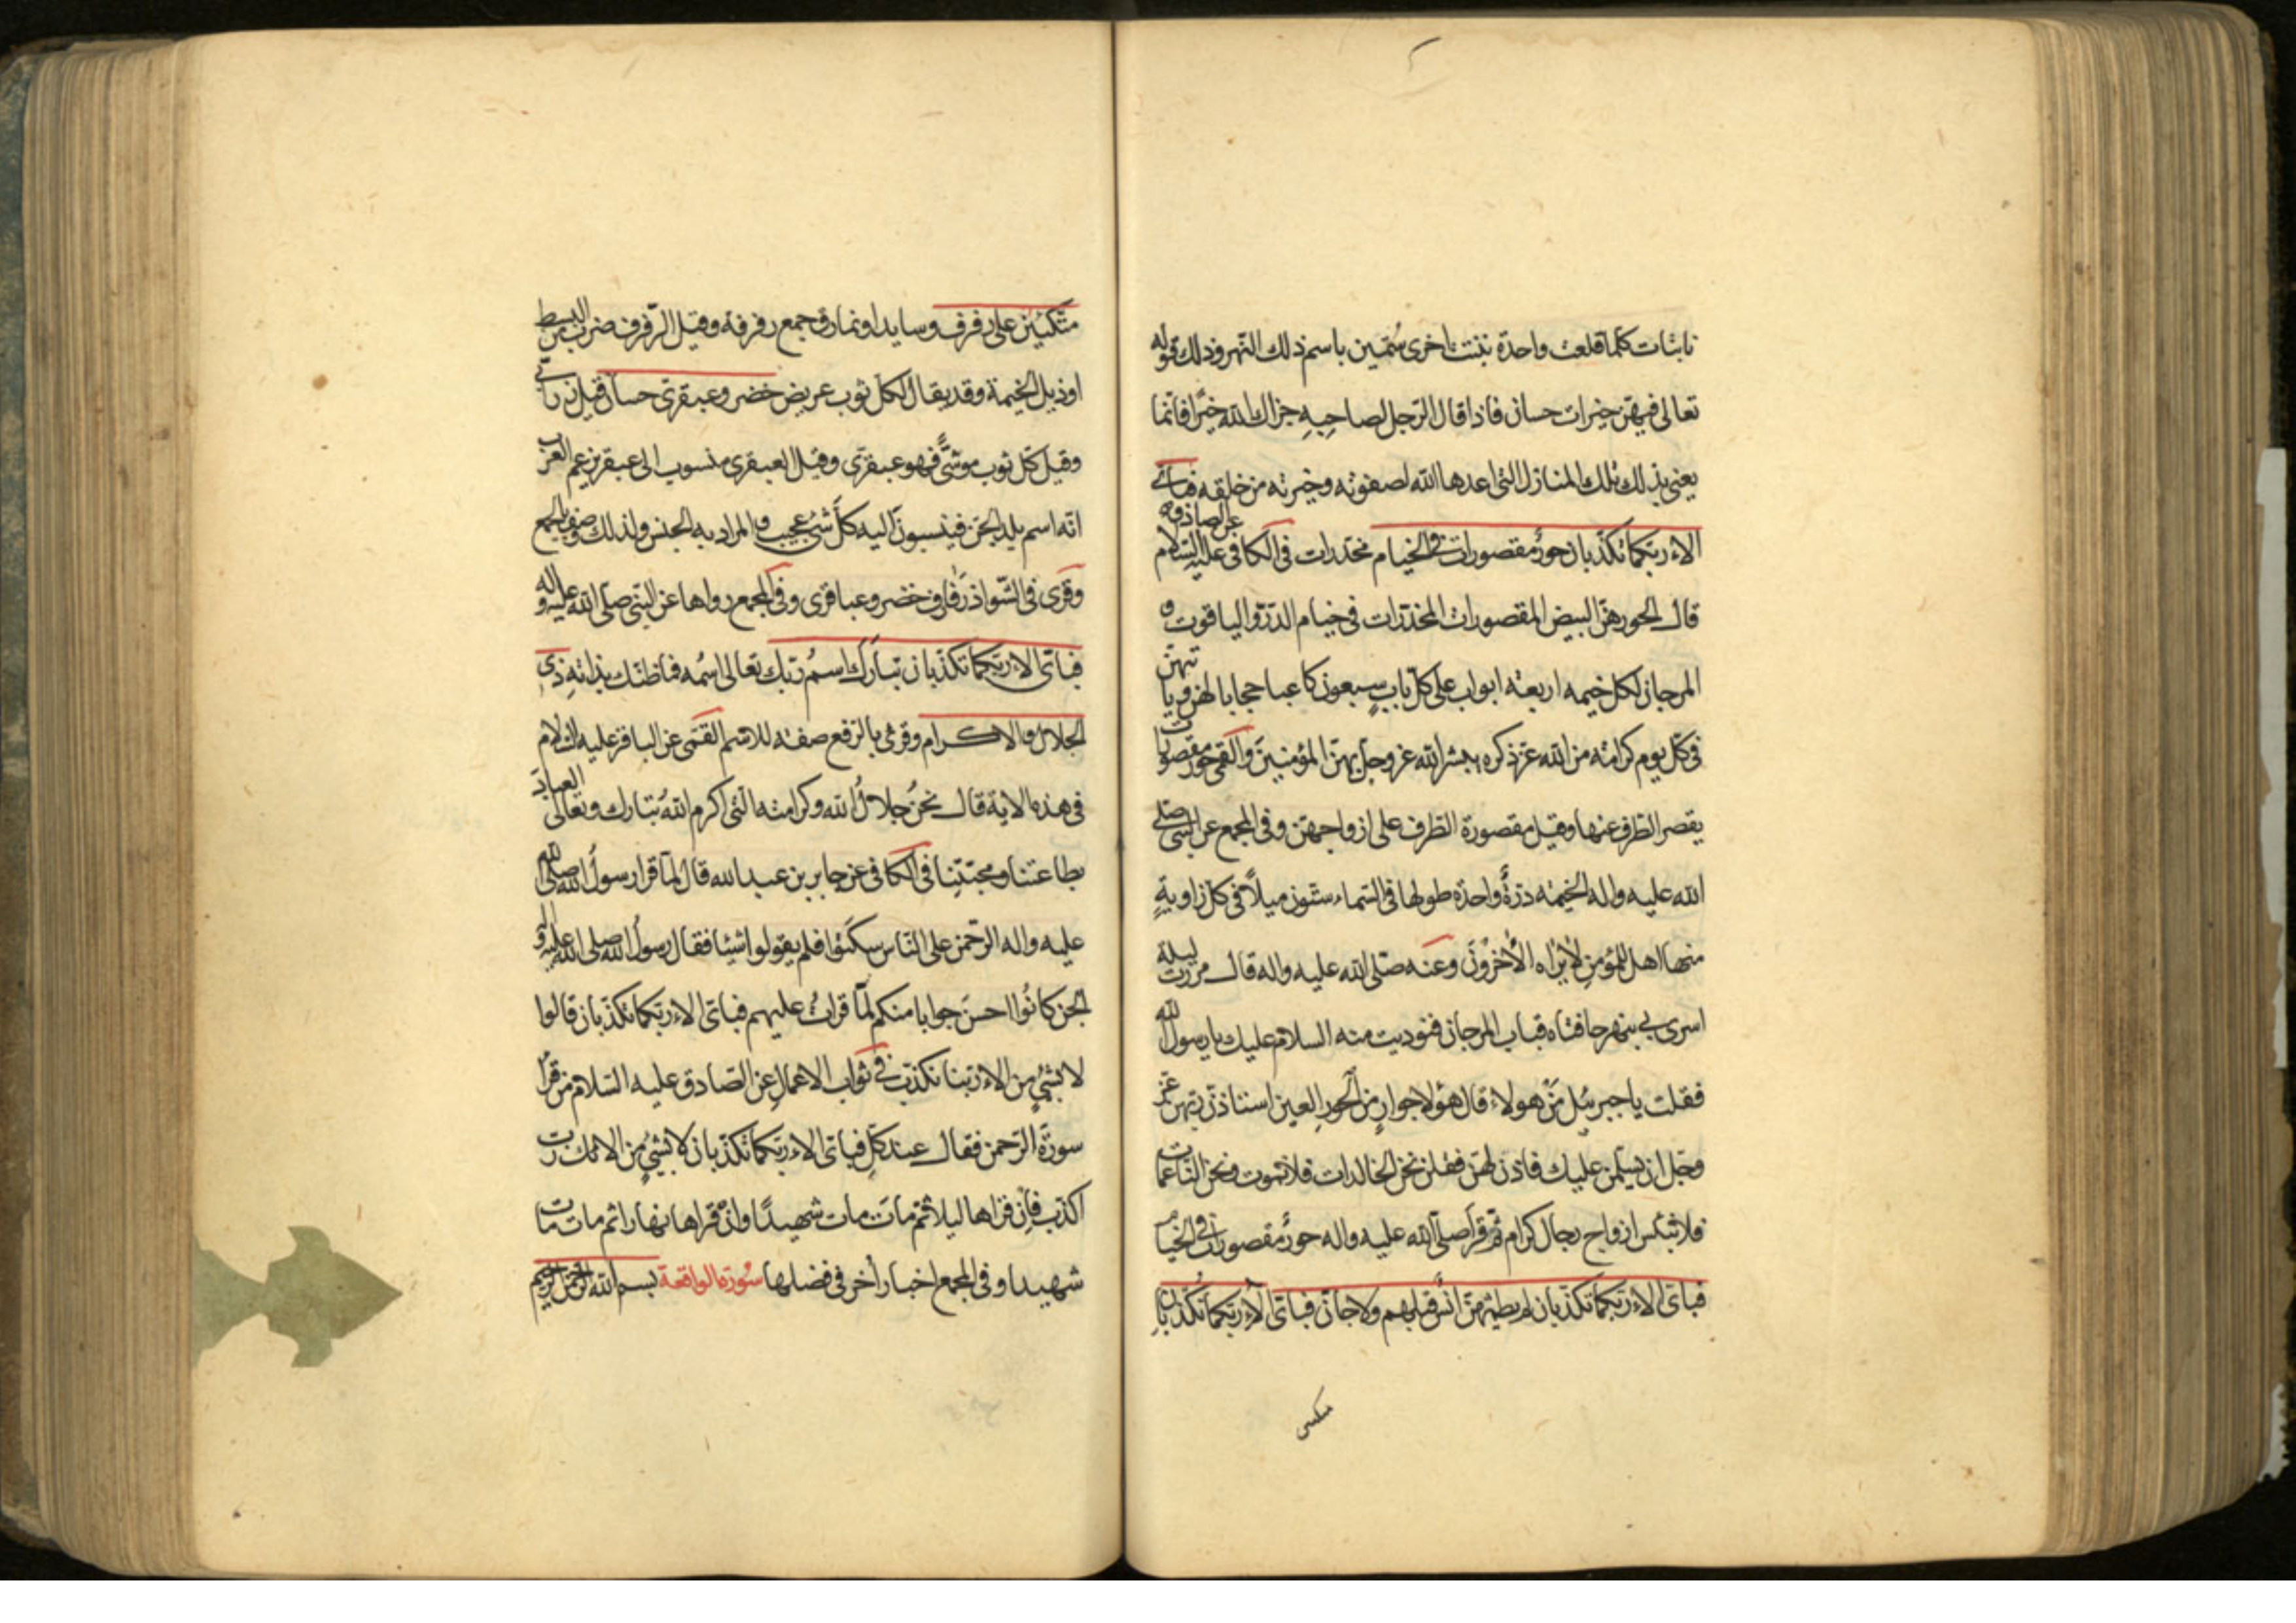 نابتات كلما قلعت واحدة نبتت اخرى سُمّين باسم ذلك النهر وذلك قوله
تعالى فيهن خيرات حسان فاذا قال الرجل لصاحِبِهِ جزاك الله خيرًا فانما
يعنى بذلك تلك المنازل التى اعدها الله لصفوته وخيرته من خلقه فباىّ
الاء ربكما تكذبان حورٌ مقصورات فى الخيام مخدرات فى الكافى عن الصادق عليه السّلام
قال الحور هنّ البيض المقصورات المخدّرات فى خيام الدرّ والياقوت و
المرجان لكل خيمه اربعة ابواب على كلّ بابٍ سبعون كاعبا حجابا لهن وياتيهنّ
فى كلّ يوم كرامته من الله عزّ ذكره يبشر الله عزّ وجلّ بهنّ المؤمنينَ والقمى حور مقصورات
يقصر الطرف عنها وقيل مقصورة الطرف على ازواجهنّ وفى المجمع عن النبىّ صلّى
الله عليه واله الخيمه درّةٌ واحدة طولها فى السّماء ستّون ميلاً فى كل زاويةٍ
منها اهل للمؤمنِ لا يراه الاٰخرُونَ وعنه صلّى الله عليه واله قال مررت ليلة
اسرى بى بنهر حافتاه قباب المرجان فنوديت منه السلام عليك يا رسول الله
فقلت يا جبرئيل مَنْ هولاء قال هؤلا جوارٍ من الحورِ العين استاذنّ ربّهنّ عزّ
وجلّ ان يسلّمن عليك فاذن لهنّ فقلن نحن الخالدات فلا نموت ونحن النّاعمات
فلا نبئس ازواج رجال كرام ثمّ قرأ صلّى الله عليه واله حورٌ مقصورات فى الخيام
فباىّ الاء ربّكما تكذّبان لم يطمثهنّ انسٌ قبلهم ولا جانّ فباىّ الآء ربّكما تُكذّبانِ
متكئين
متّكئينَ على رفرف وسايد او نمارق جمع رفرفة وقيل الرّفرف ضرب من البسط
او ذيل الخيمة وقد يقال لكلّ ثوب عريض خضر وعبقرىّ حسان قيل زرابىّ
وقيل كلّ ثوب موشّىً فهو عبقرىّ وقيل العبقرى منسوب الى عبقر يزعم العرب
انّه اسم بلد الجنّ فينسبونَ اليه كلَّ شئٍ عجيب والمراد به الجنس ولذلك وصف بالجمع
وقرَى فى الشّواذ رَفارف خضر وعباقرى وفى المجمع رواها عن النبّى صلّى الله عليه واله
فباىّ الاء ربّكما تكذّبان تبَارَك اسمُ ربّك تعالى اسُمه فما ظنّك بذاتهِ ذى
الجلال والاكرام وقرئ بالرّفع صفة للاسم القمّى عن الباقر عليه السّلام
فى هذه الاية قال نحنُ جلالُ الله وكرامته الّتى اكرم اللهُ تبارك وتعالى العباد
بطاعتنا ومحبّتنا فى الكافى عن جابر بن عبد الله قال لمّا قرا رسولُ الله صلّى الله
عليه واله الرّحمن على النّاس سكتُوا فلم يقولوا شيئا فقال رسولُ الله صلى الله عليه واله
الجن كانُوا احسنَ جوابا منكم لمّا قرات عليهم فباىّ الاء ربّكما تكذّبان قالوا
لا بشئٍ من الاء ربّنا نكذّب فى ثواب الاعمال عن الصّادق عليه السّلام من قرأ
سورَة الرّحمن فقال عند كلِّ فباىّ الاء ربّكما تكذّبان لا بشئٍ من الائك ربّ
اكذّب فاِن قراها ليلا ثمّ ماتَ مات شهيدًا وانْ قراها نهارا ثم مات مات
شهيدا وفى المجمع اخبار أخر فى فضلها سُورة الواقعة بسم الله الرحمن الرحيم